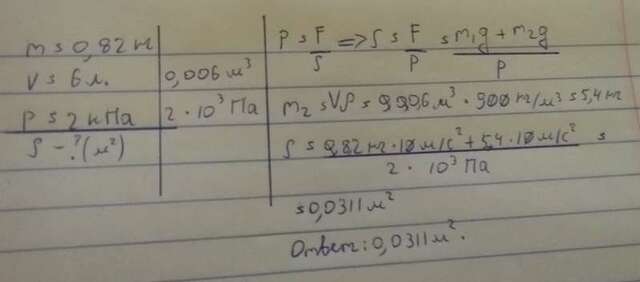 m = 0,82 кг
V = 6 л. 0,006 м³
P = 2 кПа 2 · 10³ Па
S - ? (м²)
P = F/S => S = F/P = (m₁g + m₂g)/P
m₂ = Vρ = 0,006 м³ · 900 кг/м³ = 5,4 кг
S = (0,82 кг · 10 м/с² + 5,4 · 10 м/с²)/(2 · 10³ Па) =
= 0,0311 м²
Ответ: 0,0311 м².